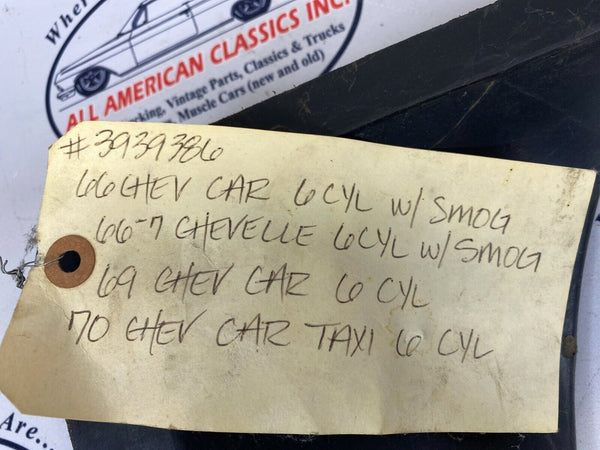 Where
ALL AMERICAN CLASSICS INC.
Vintage Parts, Classics & Trucks
Muscle Cars (new and old)
#3939386
66 CHEV CAR 6 CYL w/ SMOG
66-7 CHEVELLE 6 CYL w/ SMOG
69 CHEV CAR 6 CYL
70 CHEV CAR TAXI 6 CYL
Are...